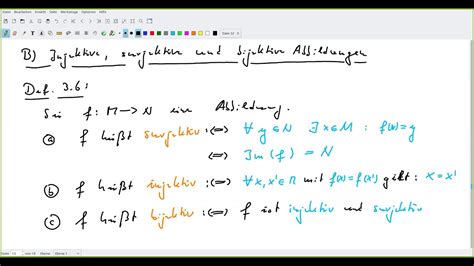 Datei Bearbeiten Ansicht Werkzeuge Optionen Hilfe
B) Injektive, surjektive und bijektive Abbildungen
Def. 3.6:
Sei f: M → N eine Abbildung.
(a) f heißt surjektiv :⇔ ∀ y ∈ N ∃ x ∈ M : f(x) = y
⇔ Im(f) = N
(b) f heißt injektiv :⇔ ∀ x, x' ∈ M mit f(x) = f(x') gilt : x = x'
(c) f heißt bijektiv :⇔ f ist injektiv und surjektiv